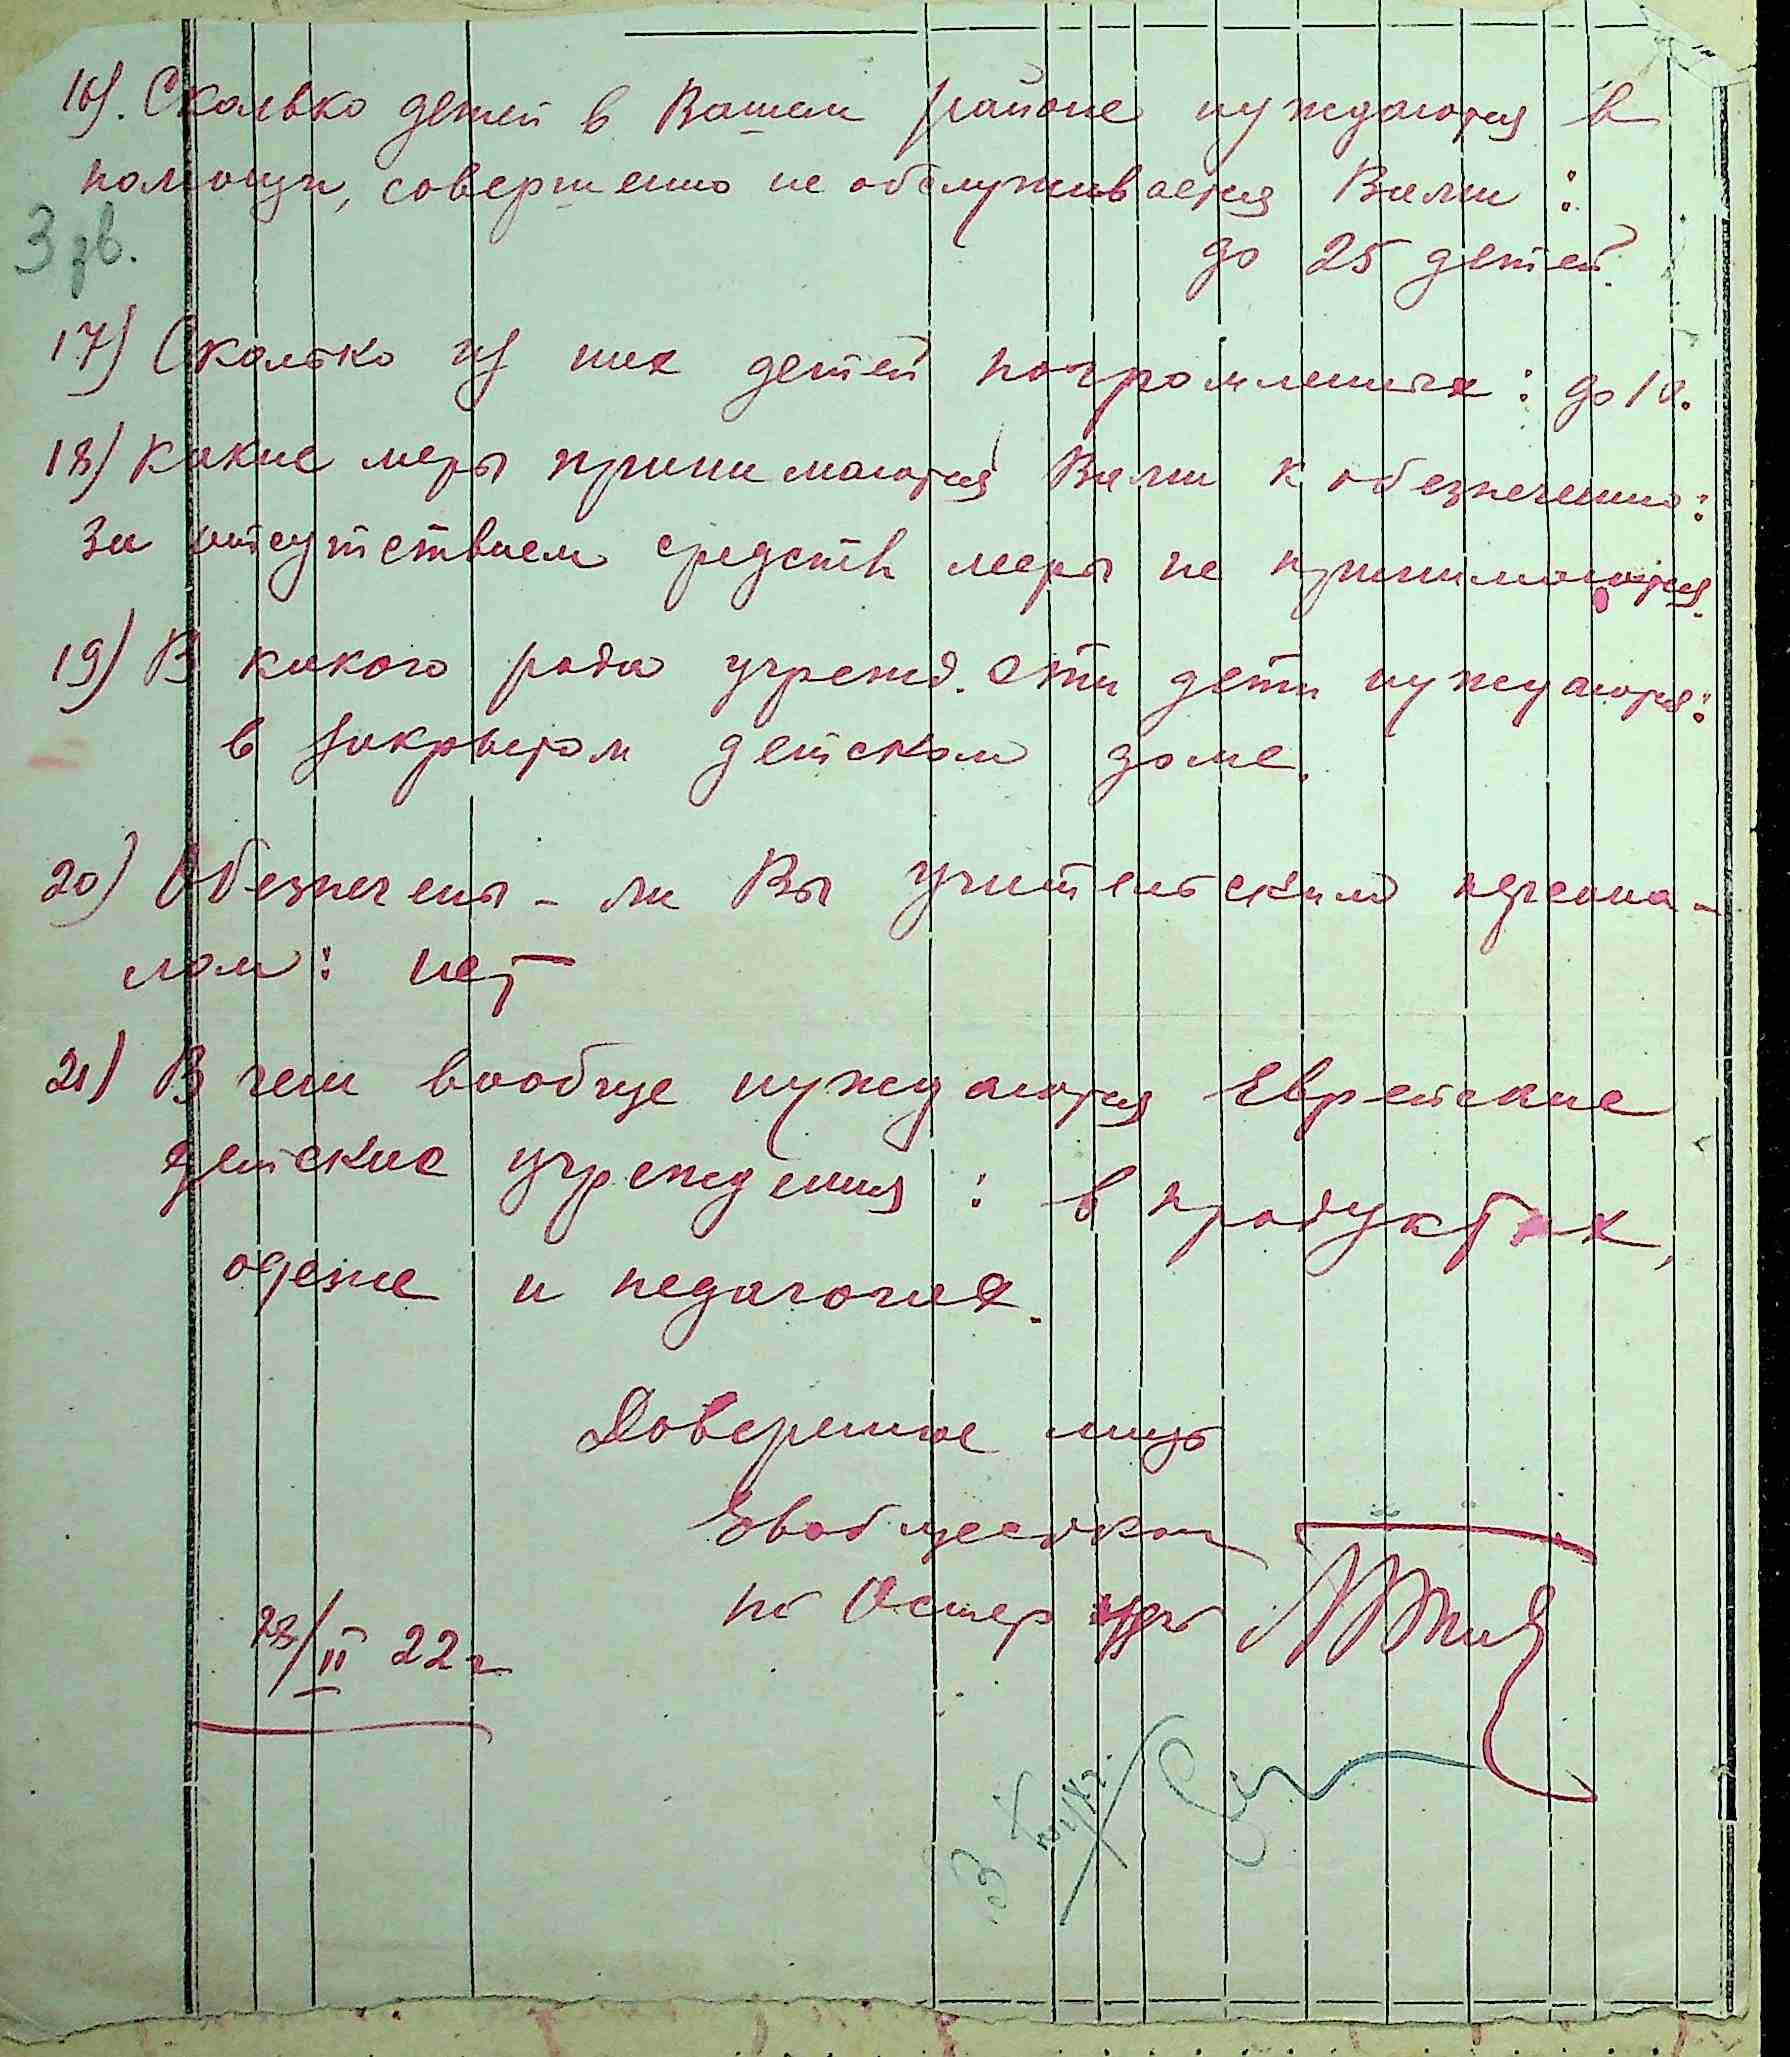 16). Сколько детей в Вашем районе нуждаются в
помощи, совершенно не обслуживается Вами :
3
до 25 детей.
17) Сколько из них детей погромленных : до 10.
18) Какие меры принимаются Вами к обезпечению :
За отсутствием средств меры не принимаются.
19) В какого рода учрежд. эти дети нуждаются :
в закрытом детском доме.
20) Обезпечены - ли Вы учительским персона-
лом : нет
21) В чем вообще нуждаются Еврейские
детские учреждения : в продуктах,
одеже и педагогах.
Доверенное лицо
Евобщесткома
по Остер
28/II 22 г